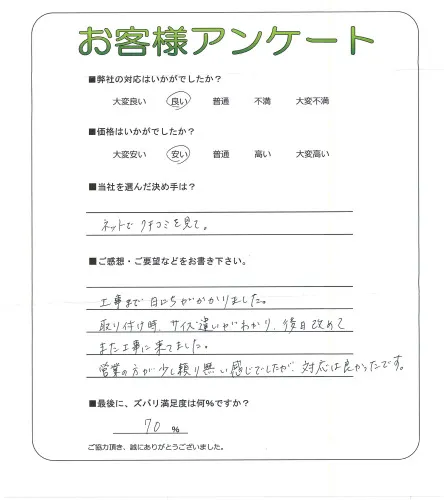 お客様アンケート
■弊社の対応はいかがでしたか?
大変良い 良い 普通 不満 大変不満
■価格はいかがでしたか?
大変安い 安い 普通 高い 大変高い
■当社を選んだ決め手は?
ネットで クチコミを見て。
■ご感想・ご要望などをお書き下さい。
工事まで日にちがかかりました。
取り付け時、サイズ違いがわかり、後日改めて
また工事に来てました。
営業の方が少し頼り無い感じでしたが、対応は良かったです。
■最後に、ズバリ満足度は何%ですか?
70 %
ご協力頂き、誠にありがとうございました。